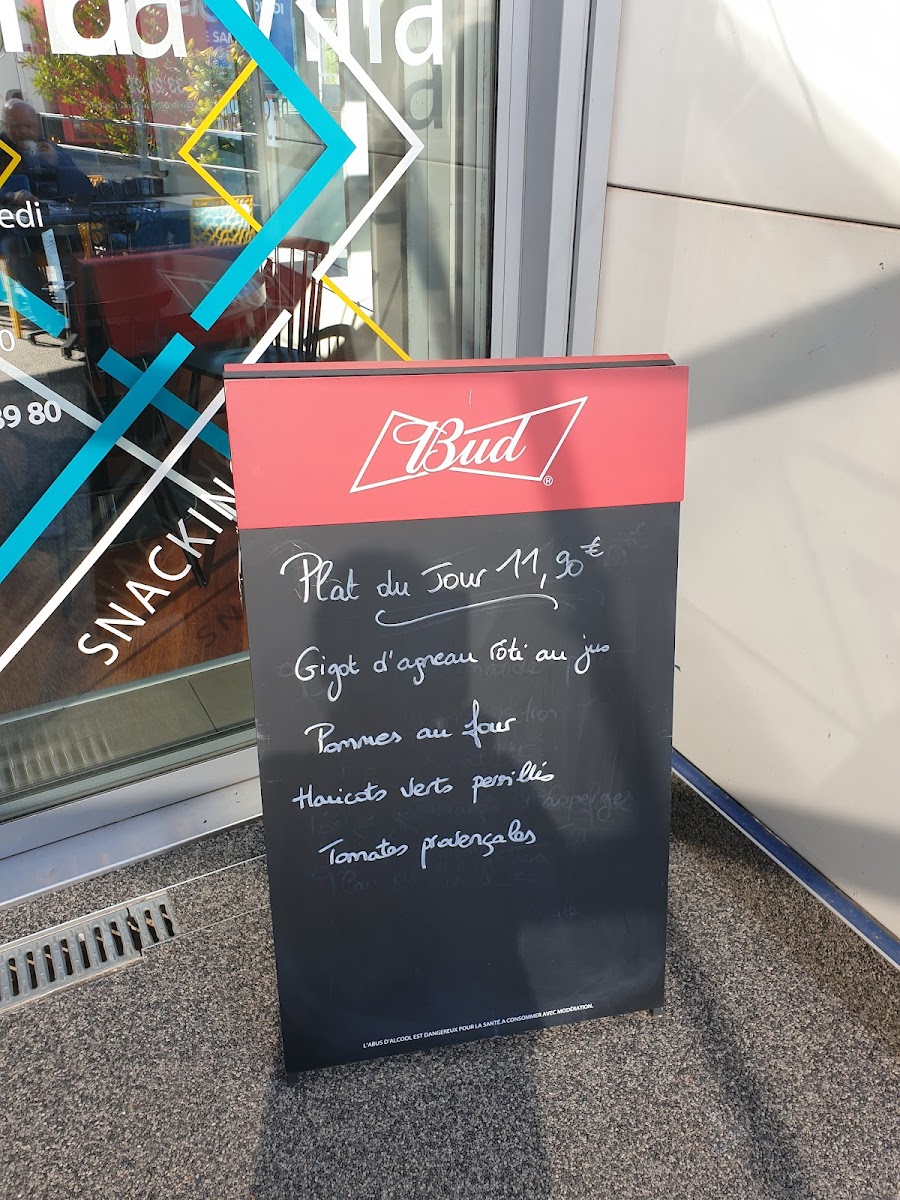 edi
0
39 80
SNACKIN
Bud®
Plat du Jour 11,90€
Gigot d'agneau rôti au jus
Pommes au four
Haricots verts persillés
Tomates provençales
asperges
L'ABUS D'ALCOOL EST DANGEREUX POUR LA SANTÉ. A CONSOMMER AVEC MODÉRATION.